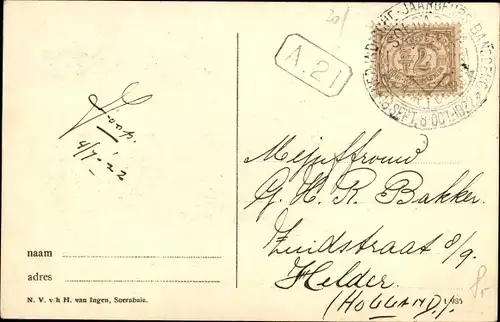 20/
A.21
NED.-INDISCHE JAARBEURS BANDOENG
SEPT. 8 OCT. 192
2
4/7-'22
Mejuffrouw
G. H. R. Bakker.
Zuidstraat 8/9.
Helder.
(HOLLAND).
naam
adres
N. V. v/h H. van Ingen, Soerabaia.